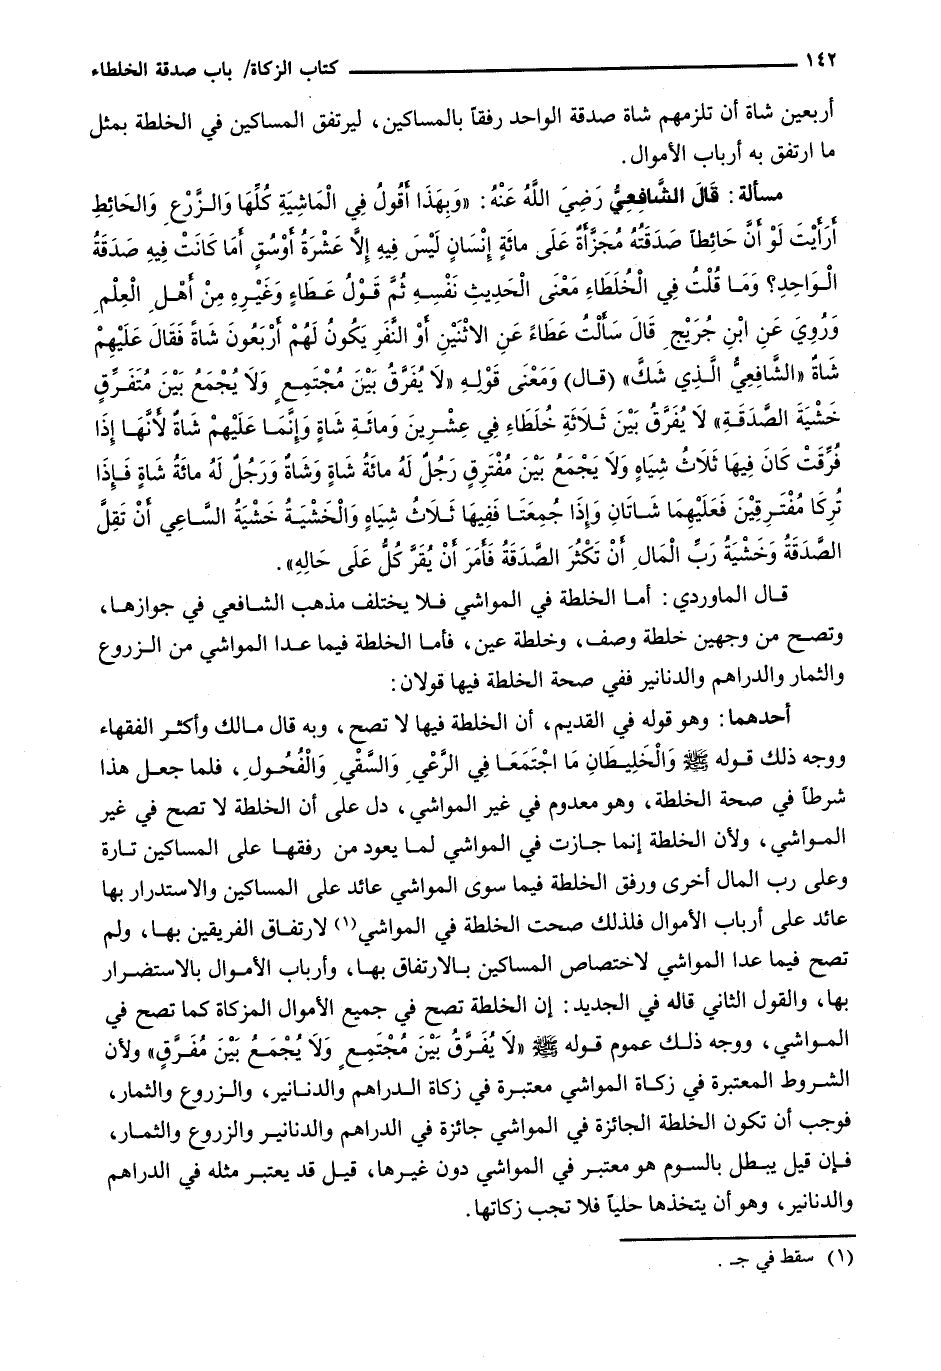 ١٤٢ ــــــ كتاب الزكاة/ باب صدقة الخلطاء
أربعين شاة أن تلزمهم شاة صدقة الواحد رفقاً بالمساكين، ليرتفق المساكين في الخلطة بمثل
ما ارتفق به أرباب الأموال.
مسألة: قَالَ الشَّافِعِيُّ رَضِيَ اللَّهُ عَنْهُ: «وَبِهَذَا أَقُولُ فِي الْمَاشِيَةِ كُلِّهَا وَالزَّرْعِ وَالحَائِطِ
أَرَأَيْتَ لَوْ أَنَّ حَائِطاً صَدَقَتُهُ مُجَزَّأَةٌ عَلَى مائَةِ إِنْسَانٍ لَيْسَ فِيهِ إِلَّا عَشْرَةُ أَوْسُقٍ أَمَا كَانَتْ فِيهِ صَدَقَةُ
الْوَاحِدِ؟ وَمَا قُلْتُ فِي الْخُلَطَاءِ مَعْنَى الْحَدِيثِ نَفْسِهِ ثُمَّ قَوْلُ عَطَاءٍ وَغَيْرِهِ مِنْ أَهْلِ الْعِلْمِ
وَرُوِيَ عَنِ ابْنِ جُرَيْجٍ قَالَ سَأَلْتُ عَطَاءً عَنِ الاثْنَيْنِ أَوْ النَّفَرِ يَكُونُ لَهُمْ أَرْبَعُونَ شَاةً فَقَالَ عَلَيْهِمْ
شَاةٌ «الشَّافِعِيُّ الَّذِي شَكَّ» (قال) وَمَعْنَى قَوْلِهِ «لَا يُفَرَّقُ بَيْنَ مُجْتَمِعٍ وَلَا يُجْمَعُ بَيْنَ مُتَفَرِّقٍ
خَشْيَةَ الصَّدَقَةِ» لَا يُفَرَّقُ بَيْنَ ثَلَاثَةِ خُلَطَاءِ فِي عِشْرِينَ وَمائَةِ شَاةٍ وَإِنَّمَا عَلَيْهِمْ شَاةٌ لأَنَّهَا إِذَا
فُرِّقَتْ كَانَ فِيهَا ثَلَاثُ شِيَاهٍ وَلَا يَجْمَعُ بَيْنَ مُفْتَرِقٍ رَجُلٌ لَهُ مائَةُ شَاةٍ وَشَاةٌ وَرَجُلٌ لَهُ مائَةُ شَاةٍ فَإِذَا
تُرِكَا مُفْتَرِقَيْنَ فَعَلَيْهِمَا شَاتَانِ وَإِذَا جُمِعَتَا فَفِيهَا ثَلَاثُ شِيَاهٍ وَالْخَشْيَةُ خَشْيَةُ السَّاعِي أَنْ تَقِلَّ
الصَّدَقَةُ وَخَشْيَةُ رَبِّ الْمَالِ أَنْ تَكْثُرَ الصَّدَقَةُ فَأَمَرَ أَنْ يُقَرَّ كُلٌّ عَلَى حَالِهِ».
قال الماوردي: أما الخلطة في المواشي فلا يختلف مذهب الشافعي في جوازها،
وتصح من وجهين خلطة وصف، وخلطة عين، فأما الخلطة فيما عدا المواشي من الزروع
والثمار والدراهم والدنانير ففي صحة الخلطة فيها قولان:
أحدهما: وهو قوله في القديم، أن الخلطة فيها لا تصح، وبه قال مالك وأكثر الفقهاء
ووجه ذلك قوله ﷺ وَالْخَلِيطَانِ مَا اجْتَمَعَا فِي الرَّعْيِ وَالسَّقْيِ وَالْفُحُولِ، فلما جعل هذا
شرطاً في صحة الخلطة، وهو معدوم في غير المواشي، دل على أن الخلطة لا تصح في غير
المواشي، ولأن الخلطة إنما جازت في المواشي لما يعود من رفقها على المساكين تارة
وعلى رب المال أخرى ورفق الخلطة فيما سوى المواشي عائد على المساكين والاستدرار بها
عائد على أرباب الأموال فلذلك صحت الخلطة في المواشي(١) لارتفاق الفريقين بها، ولم
تصح فيما عدا المواشي لاختصاص المساكين بالارتفاق بها، وأرباب الأموال بالاستضرار
بها، والقول الثاني قاله في الجديد: إن الخلطة تصح في جميع الأموال المزكاة كما تصح في
المواشي، ووجه ذلك عموم قوله ﷺ «لَا يُفَرَّقُ بَيْنَ مُجْتَمِعٍ وَلَا يُجْمَعُ بَيْنَ مُفَرَّقٍ» ولأن
الشروط المعتبرة في زكاة المواشي معتبرة في زكاة الدراهم والدنانير، والزروع والثمار،
فوجب أن تكون الخلطة الجائزة في المواشي جائزة في الدراهم والدنانير والزروع والثمار،
فإن قيل يبطل بالسوم هو معتبر في المواشي دون غيرها، قيل قد يعتبر مثله في الدراهم
والدنانير، وهو أن يتخذها حلياً فلا تجب زكاتها.
(١) سقط في جـ .